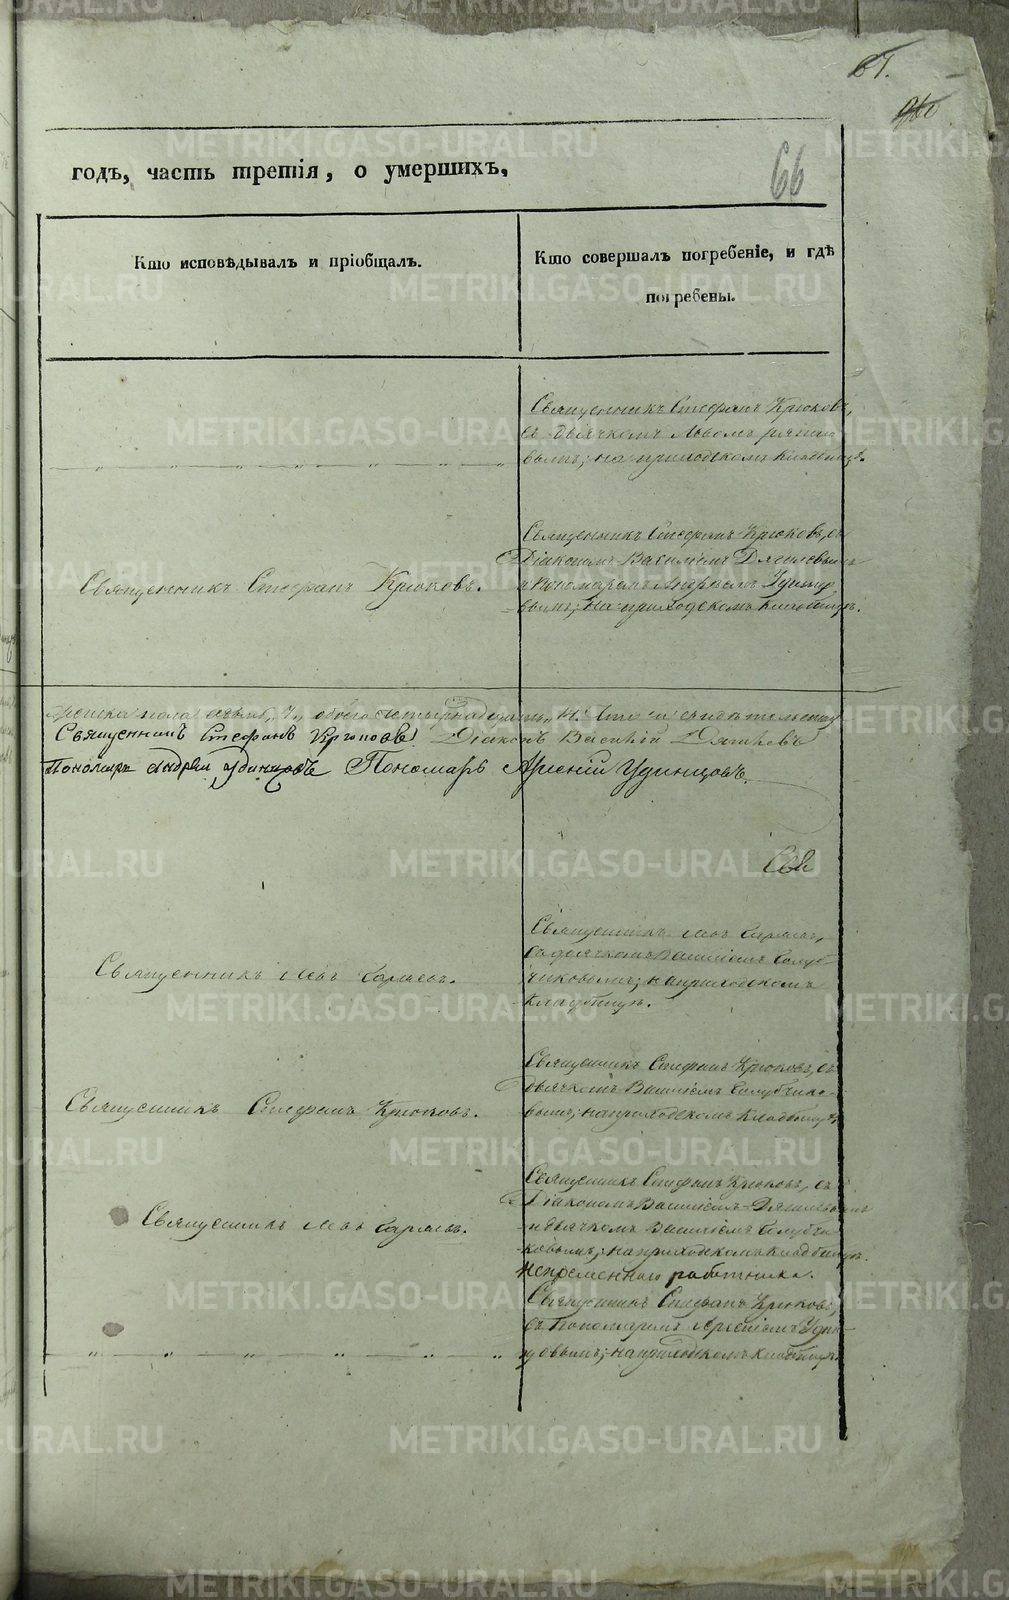 67.
66
годъ, часть третія, о умершихъ,
Кто исповѣдывалъ и пріобщалъ.
Кто совершалъ погребеніе, и гдѣ
погребены.
Священникъ Стефанъ Крюковъ,
съ дьячкомъ Львомъ
вымъ; на приходскомъ кладбищѣ.
Священникъ Стефанъ Крюковъ.
Священникъ Стефанъ Крюковъ, съ
Діакономъ Василіемъ Дягилевымъ
и Пономаремъ Андреемъ Удинцо-
вымъ; на приходскомъ кладбищѣ.
женска пола семь „7„ обоего четырнадцать „14. Въ томъ и свидѣтельствуютъ
Священникъ Стефанъ Крюковъ Діаконъ Василій Дягилевъ
Пономарь Андрей Удинцовъ Пономарь Арсеній Удинцовъ.
Священникъ Левъ
Священникъ Левъ
съ дьячкомъ Василіемъ Голуб-
чиковымъ; на приходскомъ
кладбищѣ.
Священникъ Стефанъ Крюковъ.
Священникъ Стефанъ Крюковъ, съ
дьячкомъ Василіемъ Голубчико-
вымъ; на приходскомъ кладбищѣ.
Священникъ Левъ
Священникъ Стефанъ Крюковъ, съ
Діакономъ Василіемъ Дягилевымъ
и дьячкомъ Василіемъ Голубчи-
ковымъ; на приходскомъ кладбищѣ.
Непременного работника.
Священникъ Стефанъ Крюковъ,
съ Пономаремъ Арсеніемъ Удин-
цовымъ; на приходскомъ кладбищѣ.
METRIKI.GASO-URAL.RU